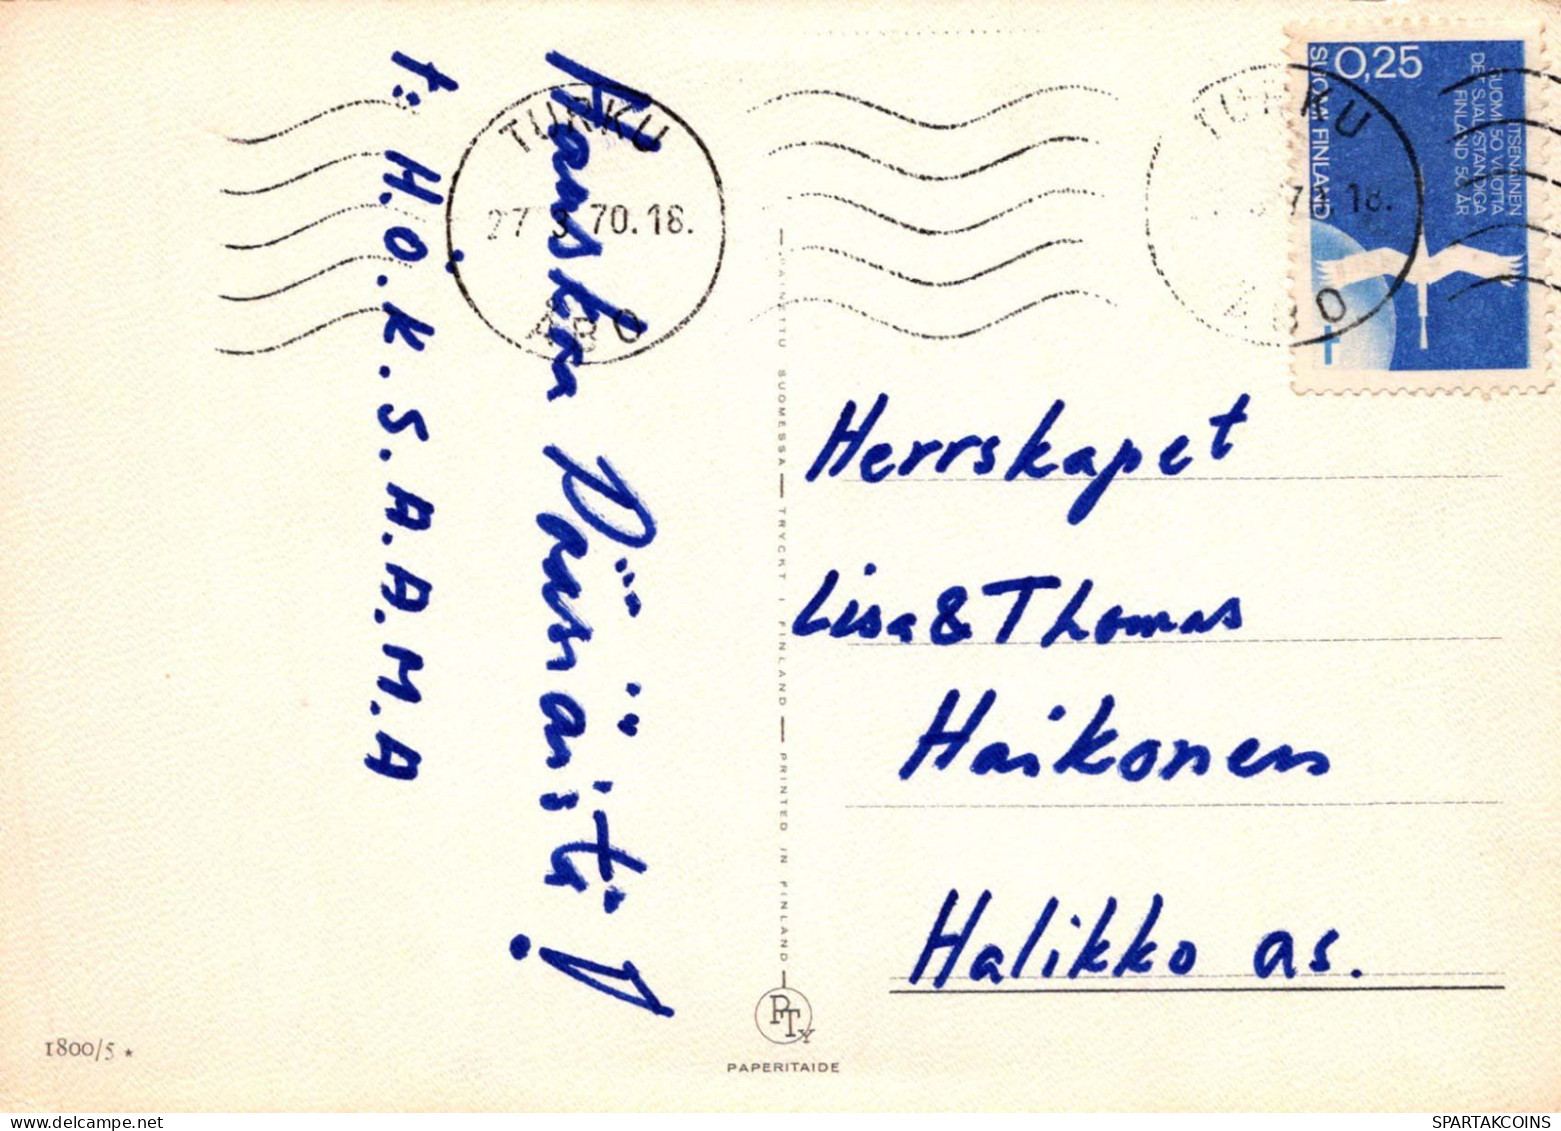 Hauska Pääsiäistä!
t: H.Ö.K.S.A.A.M.A
TURKU
27 3 70.18.
ÅBO
TURKU
70.18.
ÅBO
0,25
SUOMI FINLAND
ITSENÄINEN
SUOMI 50 VUOTTA
DET SJÄLVSTÄNDIGA
FINLAND 50 ÅR
PAINETTU SUOMESSA — TRYCKT I FINLAND — PRINTED IN FINLAND
Herrskapet
Lisa & Thomas
Haikonen
Halikko as.
PTY
PAPERITAIDE
1800/5 *
SPARTAKCOINS